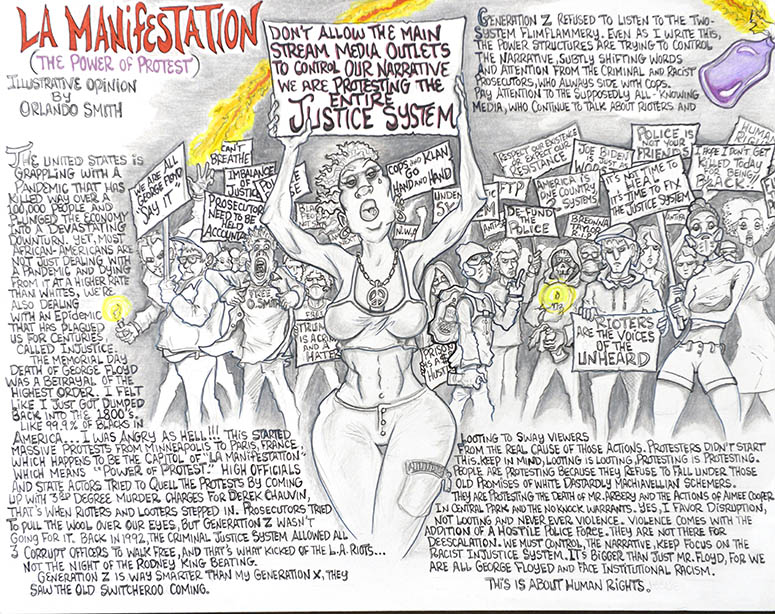 LA MANIFESTATION
(THE POWER OF PROTEST)
ILLUSTRATIVE OPINION
BY
ORLANDO SMITH
THE UNITED STATES IS
GRAPPLING WITH A
PANDEMIC THAT HAS
KILLED WAY OVER A
100,000 PEOPLE AND
PLUNGED THE ECONOMY
INTO A DEVASTATING
DOWNTURN. YET, MOST
AFRICAN-AMERICANS ARE
NOT JUST DEALING WITH
A PANDEMIC AND DYING
FROM IT AT A HIGHER RATE
THAN WHITES, WE'RE
ALSO DEALING
WITH AN EPIDEMIC
THAT HAS PLAGUED
US FOR CENTURIES,
CALLED INJUSTICE.
THE MEMORIAL DAY
DEATH OF GEORGE FLOYD
WAS A BETRAYAL OF THE
HIGHEST ORDER. I FELT
LIKE I JUST GOT DUMPED
BACK INTO THE 1800'S.
LIKE 99.9% OF BLACKS IN
AMERICA... I WAS ANGRY AS HELL!!! THIS STARTED
MASSIVE PROTESTS FROM MINNEAPOLIS TO PARIS, FRANCE,
WHICH HAPPENS TO BE THE CAPITOL OF "LA MANIFESTATION"
WHICH MEANS "POWER OF PROTEST." HIGH OFFICIALS
AND STATE ACTORS TRIED TO QUELL THE PROTESTS BY COMING
UP WITH 3RD DEGREE MURDER CHARGES FOR DEREK CHAUVIN,
THAT'S WHEN RIOTERS AND LOOTERS STEPPED IN. PROSECUTORS TRIED
TO PULL THE WOOL OVER OUR EYES, BUT GENERATION Z WASN'T
GOING FOR IT. BACK IN 1992, THE CRIMINAL JUSTICE SYSTEM ALLOWED ALL
3 CORRUPT OFFICERS TO WALK FREE, AND THAT'S WHAT KICKED OF THE L.A. RIOTS...
NOT THE NIGHT OF THE RODNEY KING BEATING.
GENERATION Z IS WAY SMARTER THAN MY GENERATION X, THEY
SAW THE OLD SWITCHEROO COMING.
GENERATION Z REFUSED TO LISTEN TO THE TWO-
SYSTEM FLIMFLAMMERY. EVEN AS I WRITE THIS,
THE POWER STRUCTURES ARE TRYING TO CONTROL
THE NARRATIVE, SUBTLY SHIFTING WORDS
AND ATTENTION FROM THE CRIMINAL AND RACIST
PROSECUTORS, WHO ALWAYS SIDE WITH COPS.
PAY ATTENTION TO THE SUPPOSEDLY ALL-KNOWING
MEDIA, WHO CONTINUE TO TALK ABOUT RIOTERS AND
LOOTING TO SWAY VIEWERS
FROM THE REAL CAUSE OF THOSE ACTIONS. PROTESTERS DIDN'T START
THIS. KEEP IN MIND, LOOTING IS LOOTING, PROTESTING IS PROTESTING.
PEOPLE ARE PROTESTING BECAUSE THEY REFUSE TO FALL UNDER THOSE
OLD PROMISES OF WHITE DASTARDLY MACHIAVELLIAN SCHEMERS.
THEY ARE PROTESTING THE DEATH OF MR. ARBERY AND THE ACTIONS OF AIMEE COOPER
IN CENTRAL PARK AND THE NO KNOCK WARRANTS. YES, I FAVOR DISRUPTION,
NOT LOOTING AND NEVER EVER VIOLENCE. VIOLENCE COMES WITH THE
ADDITION OF A HOSTILE POLICE FORCE. THEY ARE NOT THERE FOR
DEESCALATION. WE MUST CONTROL THE NARRATIVE, KEEP FOCUS ON THE
RACIST INJUSTICE SYSTEM. IT'S BIGGER THAN JUST MR. FLOYD, FOR WE
ARE ALL GEORGE FLOYED AND FACE INSTITUTIONAL RACISM.
THIS IS ABOUT HUMAN RIGHTS.
DON'T ALLOW THE MAIN
STREAM MEDIA OUTLETS
TO CONTROL OUR NARRATIVE
WE ARE PROTESTING THE
ENTIRE
JUSTICE SYSTEM
WE ARE ALL
GEORGE FLOYD
"SAY IT"
CAN'T
BREATHE
IMBALANCE
OF
JUSTICE
PROSECUTORS
NEED TO BE
HELD
ACCOUNTABLE
FREE
O. SMITH
COPS AND KLAN
GO
HAND AND HAND
N.W.A
RESPECT OUR EXISTENCE
OR EXPECT OUR
RESISTANCE
FTP
DE-FUND
THE
POLICE
JOE BIDEN
IS JUST AS
AMERICA IS
ONE COUNTRY
SYSTEMS
BREONNA
TAYLOR
POLICE IS
NOT YOUR
FRIENDS
IT'S NOT TIME TO
HEAL
IT'S TIME TO FIX
THE JUSTICE SYSTEM
I HOPE I DON'T GET
KILLED TODAY
FOR BEING
BLACK!!
HUMAN
RIOTERS
ARE THE VOICES
OF THE
UNHEARD
PRISON
HUSTLE